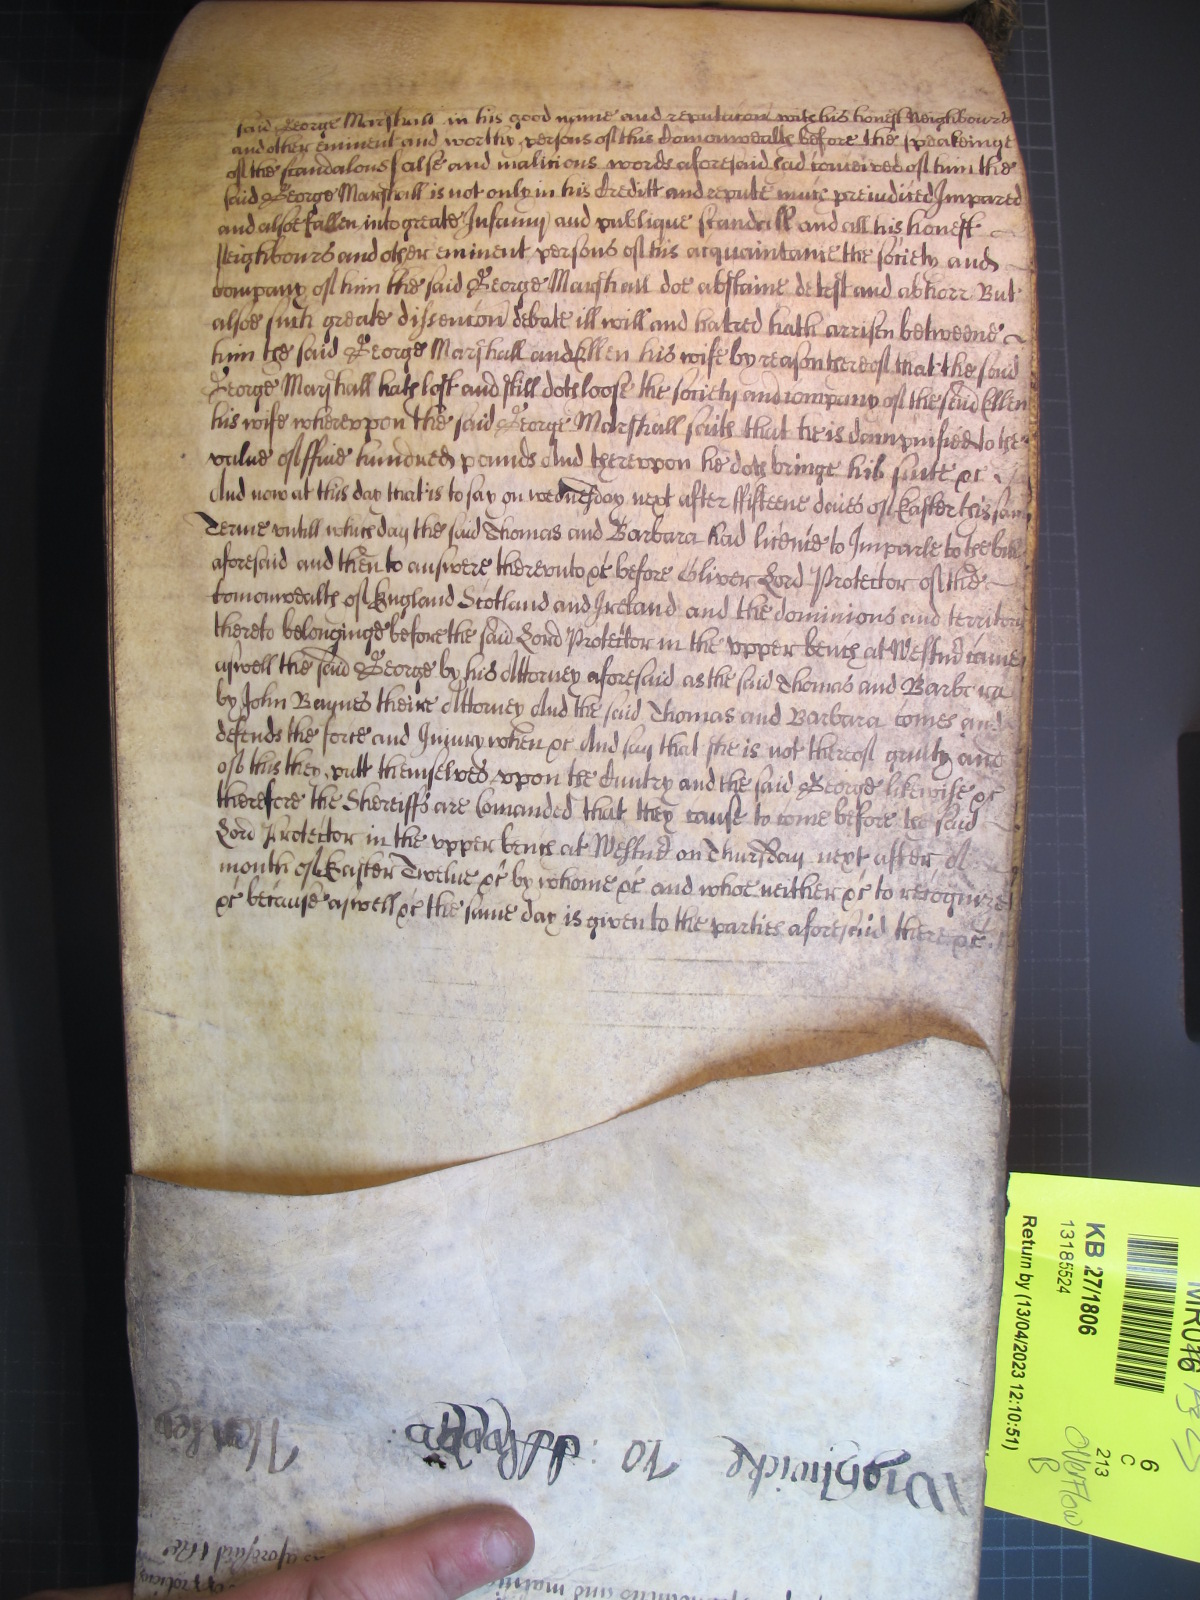 said George Marshall in his good name and reputacon with his honest Neighbours
and other eminent and worthy persons of this Comonwealth before the speakeinge
of the scandalous false and malitious words aforesaid had conceived of him the
said George Marshall is not only in his Creditt and repute much prejudiced Impared
and alsoe fallen into greate Infamy and publique scandall and all his honest
Neighbours and other eminent persons of his acquaintance the society and
company of him the said George Marshall doe abstaine detest and abhorr But
alsoe such greate dissencon debate ill will and hatred hath arrisen betweene
him the said George Marshall and Ellen his wife by reason thereof that the said
George Marshall hath lost and still doth loose the society and company of the said Ellen
his wife whereupon the said George Marshall saith that he is dampnified to the
value of ffive hundred pounds And thereupon he doth bringe his suite &c
And now at this day that is to say on wednesday next after ffifteene daies of Easter this same
Terme untill which day the said Thomas and Barbara had licence to Imparle to the bill
aforesaid and then to answere thereunto &c before Oliver Lord Protector of the
Comonwealth of England Scotland and Ireland and the dominions and territory
thereto belonginge before the said Lord Protector in the upper bench at Westmr came
aswell the said George by his Attorney aforesaid as the said Thomas and Barbara
by John Baynes theire Attorney And the said Thomas and Barbara comes and
defends the force and Injury when &c And say that she is not thereof guilty and
of this they putt themselves upon the Cuntry and the said George likewise &c
therefore the Shereiffs are Comanded that they cause to come before the said
Lord Protector in the upper bench at Westmr on Thursday next after a
month of Easter Twelve &c by whome &c and whoe neither &c to recognize
&c because aswell &c the same day is given to the parties aforesaid there &c
Wightwicke 10 :
aforesaid the
and
KB 27/1806
13185524
Return by (13/04/2023 12:10:51)
6
C
213
Overflow
B